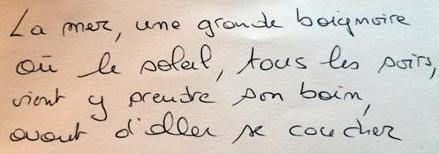 La mer, une grande baignoire
où le soleil, tous les soirs,
vient y prendre son bain,
avant d'aller se coucher